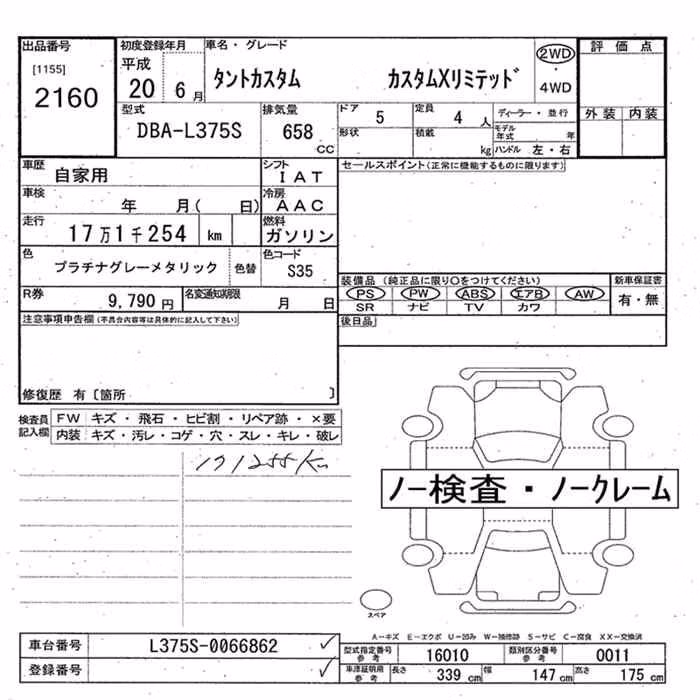 出品番号 初度登録年月 車名・グレード 評価点
[1155] 平成 2WD
2160 20 6月 タントカスタム カスタムXリミテッド ・
4WD
型式 排気量 ドア 5 定員 4人 ディーラー・並行 外装 内装
DBA-L375S 658 cc 形状 積載 kg モデル年式 年
ハンドル 左・右
車歴 自家用 シフト IAT セールスポイント(正常に機能するものに限ります)
車検 年 月( 日) 冷房 AAC
走行 17万1千254 km 燃料 ガソリン
色 プラチナグレーメタリック 色替 色コード S35
装備品 (純正品に限り○をつけてください) 新車保証書
R券 9,790円 名変通知期限 月 日 PS PW ABS エアB AW 有・無
SR ナビ TV カワ
注意事項申告欄(不具合内容等は具体的に記入して下さい) 後日品
修復歴 有〔箇所 〕
検査員 FW キズ・飛石・ヒビ割・リペア跡・×要
記入欄 内装 キズ・汚レ・コゲ・穴・スレ・キレ・破レ
171255Km
ノー検査・ノークレーム
スペア
A-キズ E-エクボ U-凹み W-補修跡 S-サビ C-腐食 XX-交換済
車台番号 L375S-0066862 ✓ 型式指定番号 参考 16010 類別区分番号 参考 0011
登録番号 ✓ 車庫証明用 参考 長さ 339 cm 幅 147 cm 高さ 175 cm